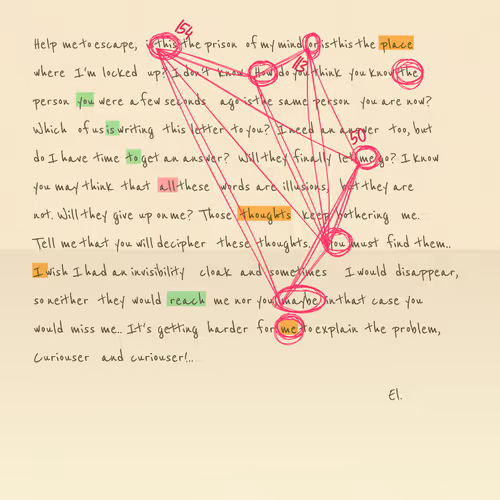 154
Help me to escape, is this the prison of my mind or is this the place
113
where I'm locked up? I don't know. How do you think you know the
person you were a few seconds ago is the same person you are now?
Which of us is writing this letter to you? I need an answer too, but
50
do I have time to get an answer? Will they finally let me go? I know
you may think that all these words are illusions, but they are
not. Will they give up on me? Those thoughts keep bothering me.
Tell me that you will decipher these thoughts. You must find them..
I wish I had an invisibility cloak and sometimes I would disappear,
so neither they would reach me nor you maybe in that case you
would miss me.. It's getting harder for me to explain the problem,
Curiouser and curiouser!..
El.